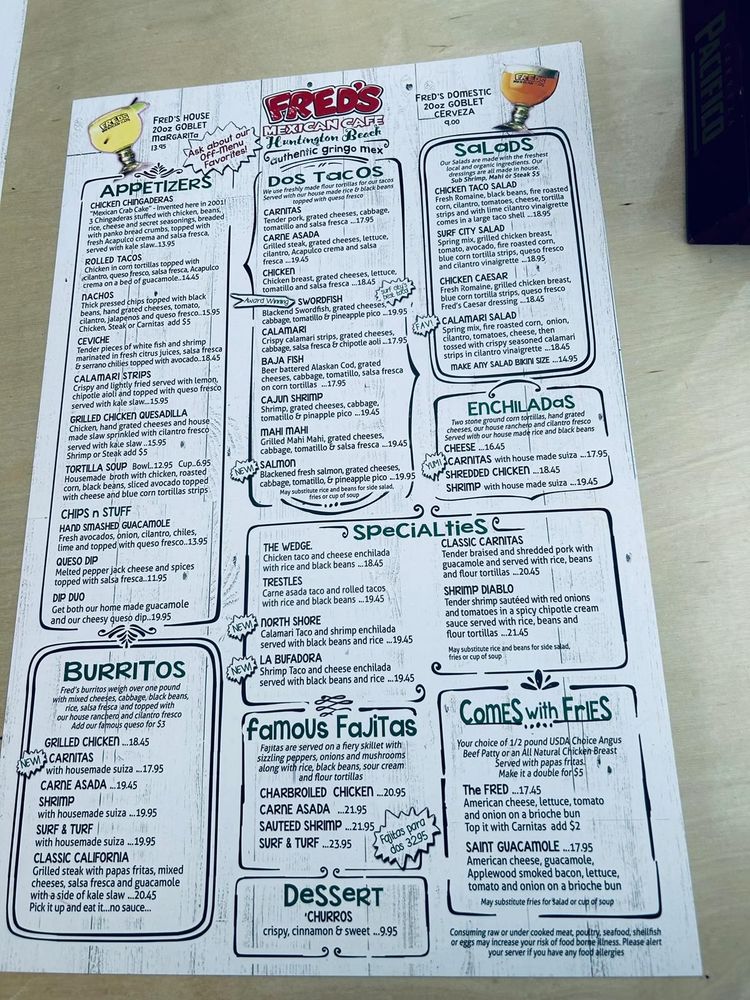 FRED'S HOUSE
20oz GOBLET
MARGARITA
13.95
Ask about our
Off-Menu
Favorites!
FRED'S
MEXICAN CAFE
Huntington Beach
authentic gringo mex
FRED'S DOMESTIC
20oz GOBLET
CERVEZA
9.00
PACIFICO
APPETIZERS
CHICKEN CHINGADERAS
"Mexican Crab Cake" - Invented here in 2001!
3 Chingaderas stuffed with chicken, beans,
rice, cheese and secret seasonings, breaded
with panko bread crumbs, topped with
fresh Acapulco crema and salsa fresca,
served with kale slaw..13.95
ROLLED TACOS
Chicken in corn tortillas topped with
cilantro, queso fresco, salsa fresca, Acapulco
crema on a bed of guacamole..14.45
NACHOS
Thick pressed chips topped with black
beans, hand grated cheeses, tomato,
cilantro, jalapenos and queso fresco..15.95
Chicken, Steak or Carnitas add $5
CEVICHE
Tender pieces of white fish and shrimp
marinated in fresh citrus juices, salsa fresca
& serrano chilies topped with avocado..18.45
CALAMARI STRIPS
Crispy and lightly fried served with lemon,
chipotle aioli and topped with queso fresco
served with kale slaw...15.95
GRILLED CHICKEN QUESADILLA
Chicken, hand grated cheeses and house
made slaw sprinkled with cilantro fresco
served with kale slaw ...15.95
Shrimp or Steak add $5
TORTILLA SOUP Bowl..12.95 Cup..6.95
Housemade broth with chicken, roasted
corn, black beans, sliced avocado topped
with cheese and blue corn tortillas strips
CHIPS n STUFF
HAND SMASHED GUACAMOLE
Fresh avocados, onion, cilantro, chiles,
lime and topped with queso fresco..13.95
QUESO DIP
Melted pepper jack cheese and spices
topped with salsa fresca..11.95
DIP DUO
Get both our home made guacamole
and our cheesy queso dip..19.95
BURRITOS
Fred's burritos weigh over one pound
with mixed cheeses, cabbage, black beans,
rice, salsa fresca and topped with
our house ranchero and cilantro fresco
Add our famous queso for $3
GRILLED CHICKEN ...18.45
NEW!
CARNITAS
with housemade suiza ...17.95
CARNE ASADA ...19.45
SHRIMP
with housemade suiza ...19.95
SURF & TURF
with housemade suiza ...19.95
CLASSIC CALIFORNIA
Grilled steak with papas fritas, mixed
cheeses, salsa fresca and guacamole
with a side of kale slaw ...20.45
Pick it up and eat it...no sauce...
DOS TACOS
We use freshly made flour tortillas for our tacos
Served with our house made rice & black beans
topped with queso fresco
CARNITAS
Tender pork, grated cheeses, cabbage,
tomatillo and salsa fresca ...17.95
CARNE ASADA
Grilled steak, grated cheeses, lettuce,
cilantro, Acapulco crema and salsa
fresca ...19.45
CHICKEN
Chicken breast, grated cheeses, lettuce,
tomatillo and salsa fresca ...18.45
Award Winning
SWORDFISH
surf city's
best taco
Blackend Swordfish, grated cheeses,
cabbage, tomatillo & pineapple pico ...19.95
CALAMARI
Crispy calamari strips, grated cheeses,
cabbage, salsa fresca & chipotle aoli ...17.95
BAJA FISH
Beer battered Alaskan Cod, grated
cheeses, cabbage, tomatillo, salsa fresca
on corn tortillas ...17.95
CAJUN SHRIMP
Shrimp, grated cheeses, cabbage,
tomatillo & pinapple pico ...19.45
MAHI MAHI
Grilled Mahi Mahi, grated cheeses,
cabbage, tomatillo & salsa fresca ...19.45
NEW!
SALMON
Blackened fresh salmon, grated cheeses,
cabbage, tomatillo, & pineapple pico ...19.95
May substitute rice and beans for side salad,
fries or cup of soup
SALADS
Our Salads are made with the freshest
local and organic ingredients. Our
dressings are all made in house.
Sub Shrimp, Mahi or Steak $5
CHICKEN TACO SALAD
Fresh Romaine, black beans, fire roasted
corn, cilantro, tomatoes, cheese, tortilla
strips and with lime cilantro vinaigrette
comes in a large taco shell ...18.95
SURF CITY SALAD
Spring mix, grilled chicken breast,
tomato, avocado, fire roasted corn,
blue corn tortilla strips, queso fresco
and cilantro vinaigrette ...18.95
CHICKEN CAESAR
Fresh Romaine, grilled chicken breast,
blue corn tortilla strips, queso fresco
Fred's Caesar dressing ...18.45
FAV!
CALAMARI SALAD
Spring mix, fire roasted corn, onion,
cilantro, tomatoes, cheese, then
tossed with crispy seasoned calamari
strips in cilantro vinaigrette ...18.45
MAKE ANY SALAD BIKINI SIZE ...14.95
ENCHILADAS
Two stone ground corn tortillas, hand grated
cheeses, our house ranchero and cilantro fresco
Served with our house made rice and black beans
CHEESE ...16.45
YUM!
CARNITAS with house made suiza ...17.95
SHREDDED CHICKEN ...18.45
SHRIMP with house made suiza ...19.45
SPECIALTIES
THE WEDGE.
Chicken taco and cheese enchilada
with rice and black beans ...18.45
TRESTLES
Carne asada taco and rolled tacos
with rice and black beans ...19.45
NEW!
NORTH SHORE
Calamari Taco and shrimp enchilada
served with black beans and rice ...19.45
NEW!
LA BUFADORA
Shrimp Taco and cheese enchilada
served with black beans and rice ...19.45
CLASSIC CARNITAS
Tender braised and shredded pork with
guacamole and served with rice, beans
and flour tortillas ...20.45
SHRIMP DIABLO
Tender shrimp sautéed with red onions
and tomatoes in a spicy chipotle cream
sauce served with rice, beans and
flour tortillas ...21.45
May substitute rice and beans for side salad,
fries or cup of soup
FAMOUS FAJITAS
Fajitas are served on a fiery skillet with
sizzling peppers, onions and mushrooms
along with rice, black beans, sour cream
and flour tortillas
CHARBROILED CHICKEN ...20.95
CARNE ASADA ...21.95
SAUTEED SHRIMP ...21.95
SURF & TURF ...23.95
Fajitas para
dos 32.95
DESSERT
CHURROS
crispy, cinnamon & sweet ...9.95
COMES with FRIES
Your choice of 1/2 pound USDA Choice Angus
Beef Patty or an All Natural Chicken Breast
Served with papas fritas.
Make it a double for $5
The FRED ...17.45
American cheese, lettuce, tomato
and onion on a brioche bun
Top it with Carnitas add $2
SAINT GUACAMOLE ...17.95
American cheese, guacamole,
Applewood smoked bacon, lettuce,
tomato and onion on a brioche bun
May substitute fries for Salad or cup of soup
Consuming raw or under cooked meat, poultry, seafood, shellfish
or eggs may increase your risk of food borne illness. Please alert
your server if you have any food allergies